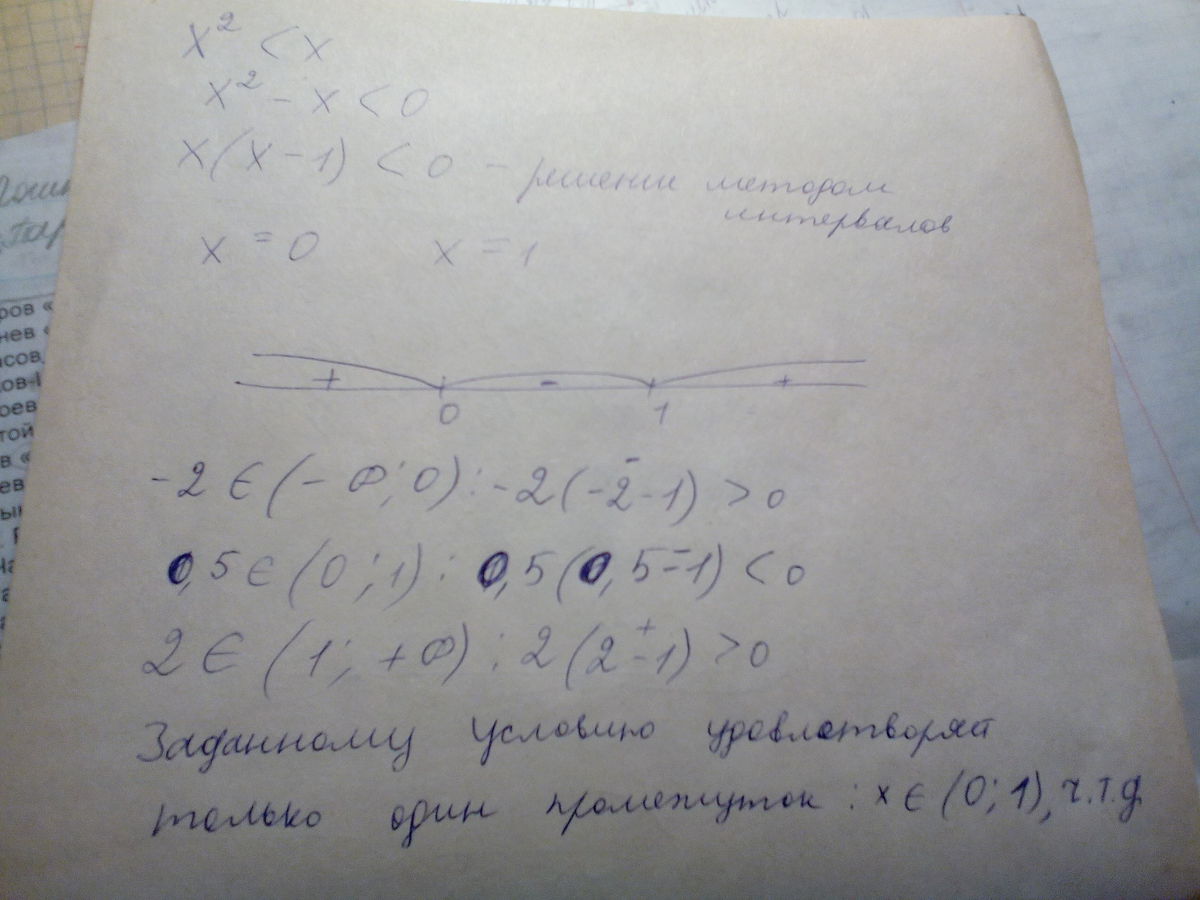 x² < x
x² - x < 0
x(x-1) < 0 - решение методом
интервалов
x = 0 x = 1
+ - +
0 1
-2 ∈ (-∞; 0) : -2(-2-1) > 0
0,5 ∈ (0; 1) : 0,5(0,5-1) < 0
2 ∈ (1; +∞) : 2(2-1) > 0
Заданному условию удовлетворяет
только один промежуток : x ∈ (0; 1), ч.т.д.
ров «
нев «
асов,
ов-
оев
той
в «
ев